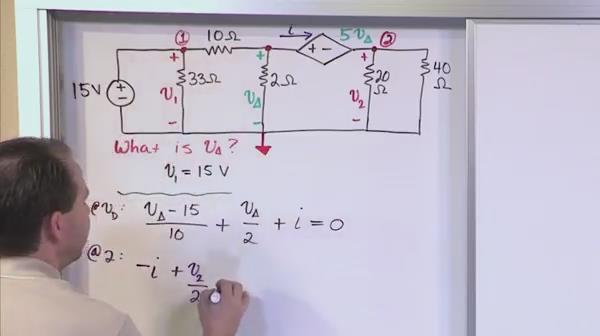 ① 10Ω i 5V_Δ ②
+ + + − +
15V + − V₁ 33Ω V_Δ 2Ω V₂ 20Ω 40Ω
− − −
What is V_Δ?
V₁ = 15 V
@V_D: (V_Δ − 15)/10 + V_Δ/2 + i = 0
@2: −i + V₂/2